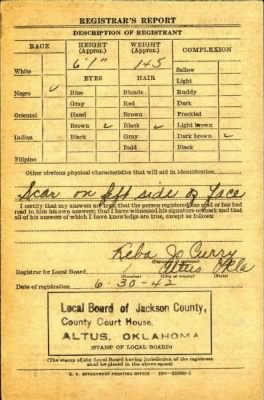 REGISTRAR'S REPORT
DESCRIPTION OF REGISTRANT
RACE HEIGHT (Approx.) WEIGHT (Approx.) COMPLEXION
White 6'1" 145 Sallow
EYES HAIR Light
Negro ✓ Blue Blonde Ruddy
Gray Red Dark
Oriental Hazel Brown Freckled
Brown ✓ Black ✓ Light brown
Indian Black Gray Dark brown ✓
Bald Black
Filipino
Other obvious physical characteristics that will aid in identification
Scar on left side of face
I certify that my answers are true; that the person registered has read or has had
read to him his own answers; that I have witnessed his signature or mark and that
all of his answers of which I have knowledge are true, except as follows:
Reba Jo Curry
Registrar for Local Board Altus Okla
Date of registration 6-30-42
Local Board of Jackson County,
County Court House,
ALTUS, OKLAHOMA
(STAMP OF LOCAL BOARD)
(The stamp of the Local Board having jurisdiction of the registrant
shall be placed in the above space)
U. S. GOVERNMENT PRINTING OFFICE